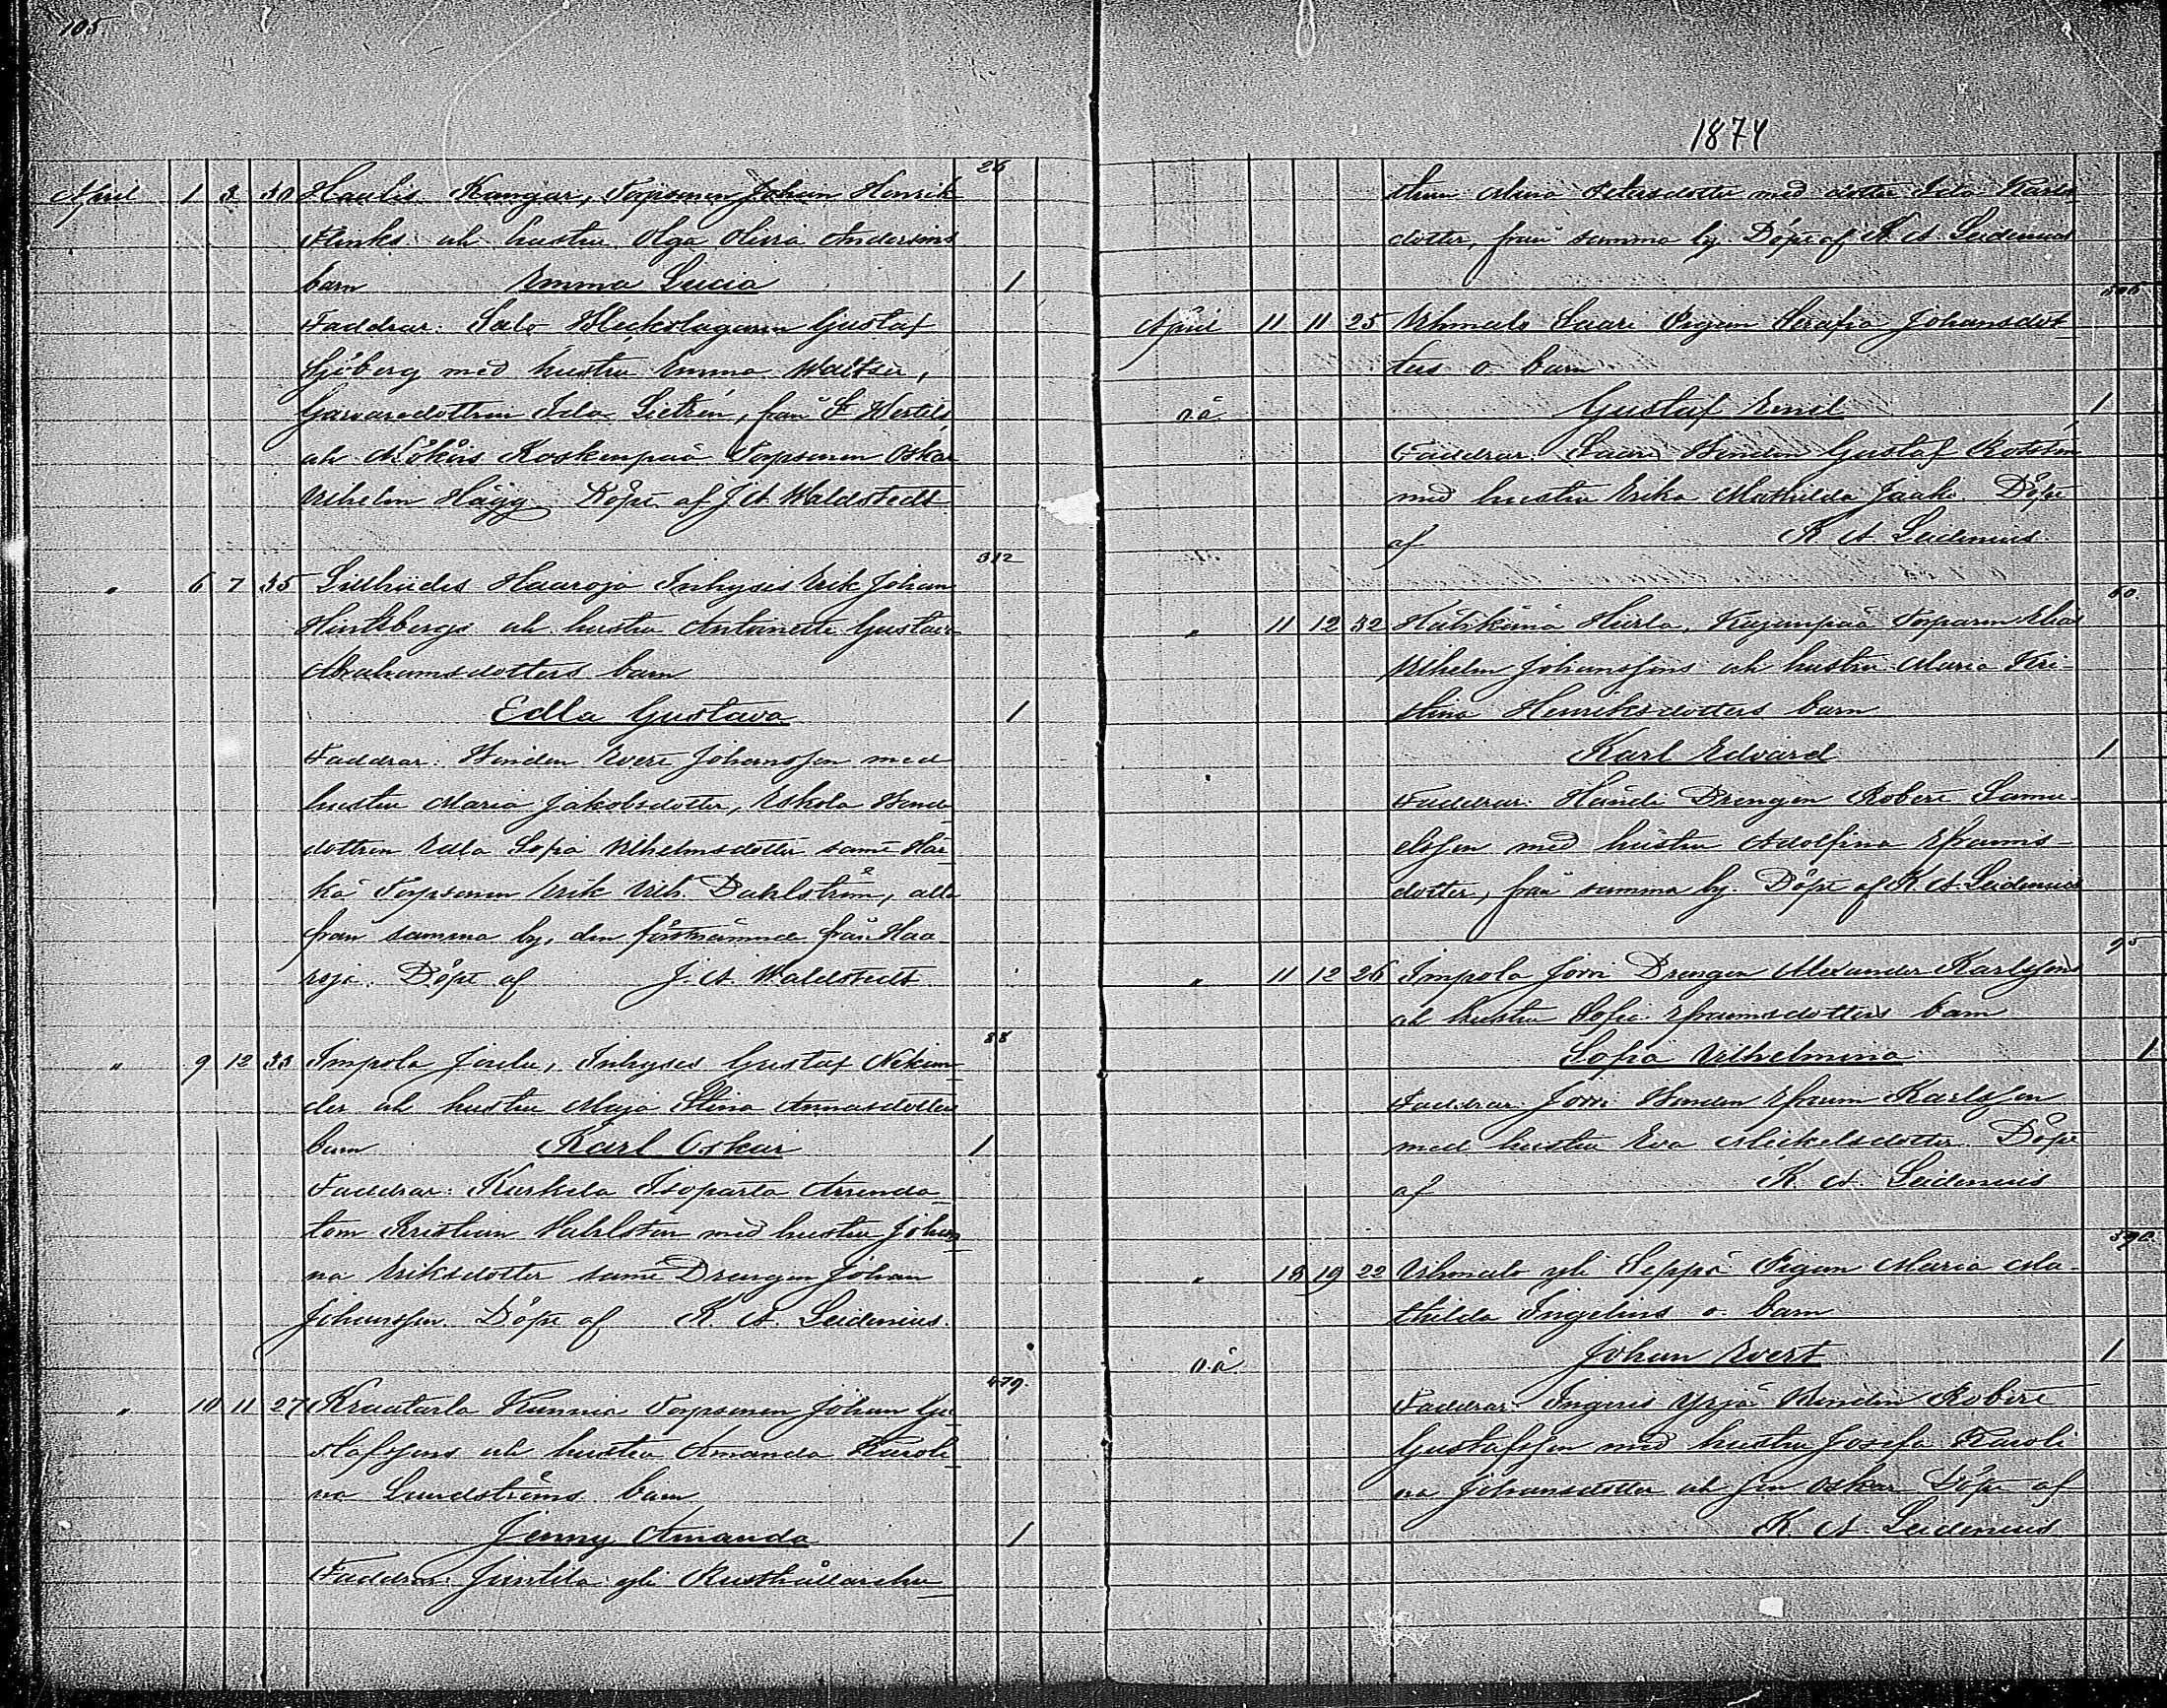 105.
26
April 1 3 30 Haulis Kangar, Torpsonen Johan Henrik
Flinks och hustru Olga Olivia Andersins
barn Emma Lucia 1
Faddrar: Salo Bleckslagaren Gustaf
Sjöberg med hustru Emma
Garfvaredottren Ida från St Bertils
och Koskenpää Torpsonen Oskar
Vilhelm Hägg. Döpt af J. A. Waldstedt
312
" 6 7 35 Haaroja Inhyses Erik Johan
och hustru Antoinette Gustava
Abrahamsdotters barn
Edla Gustava 1
Faddrar: Bonden Evert Johansson med
hustru Maria Jakobsdotter, Eskola Bond
dottren Edla Sofia Vilhelmsdotter samt Här
kä Torpsonen Erik Vilh. Dahlström, alla
från samma by, den förstnämnde från Haa
roja. Döpt af J. A. Waldstedt
88
" 9 12 33 Impola Inhyses Gustaf
der och hustru Maja Stina Annasdotters
barn Karl Oskar 1
Faddrar: Kurkela Isoparta Arrenda
torn Kristian med hustru Johan
na Eriksdotter samt Drengen Johan
Johansson. Döpt af K. A. Leidenius.
479.
" 10 11 27 Kraatarla Kunnia Torpsonen Johan Gu
stafssons och hustru Amanda Karoli
na Lundströms barn
Jenny Amanda 1
Faddrar: Junttila yli Rusthållarehu
1874
strun Petersdotter med dotter Ida Karls
dotter, från samma by. Döpt af K. A. Leidenius
April 11 11 25 Vihmalo Saari Pigan Serafia Johansdot
ters o. barn
o.ä. Gustaf Emil 1
Faddrar: Saari Bonden Gustaf
med hustru Erika Mathilda Jaako. Döpt
af K A. Leidenius.
50.
" 11 12 32 Hätikämä Hiirla, Kujanpää Torparen Elias
Vilhelm Johanssons och hustru Maria Kri-
stina Henriksdotters barn
Karl Edvard 1
Faddrar: Drengen Robert Samu
elsson med hustru Adolfina Efraims-
dotter, från samma by. Döpt af K. A. Leidenius
95
" 11 12 26 Impola Jovi Drengen Alexander Karlssons
och hustru Sofia Efraimsdotters barn
Sofia Vilhelmina 1
Faddrar: Jovi Bonden Efraim Karlsson
med hustru Eva Mickelsdotter. Döpt
af K. A. Leidenius
" 18 19 22 Vihmalo yli Seppä Pigan Maria Ma-
thilda Ingelins o. barn
o.ä Johan Evert 1
Faddrar: Ingeris Yrjä Bonden Robert
Gustafsson med hustru Josefa Karoli
na Johansdotter och son Oskar. Döpt af
K A. Leidenius